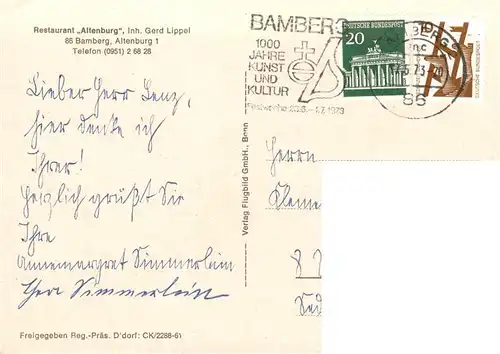 Restaurant „Altenburg", Inh. Gerd Lippel
86 Bamberg, Altenburg 1
Telefon (0951) 2 66 28
Lieber Herr Lenz,
hier denke ich
Ihrer!
Herzlich grüßt Sie
Ihre
Annemargret Simmerlein
Simmerlein
Freigegeben Reg.-Präs. D'dorf: CK/2288-61
Verlag Flugbild GmbH., Bonn
BAMBERG
1000
JAHRE
KUNST
UND
KULTUR
1.7.1973
DEUTSCHE BUNDESPOST
20
86
Herrn